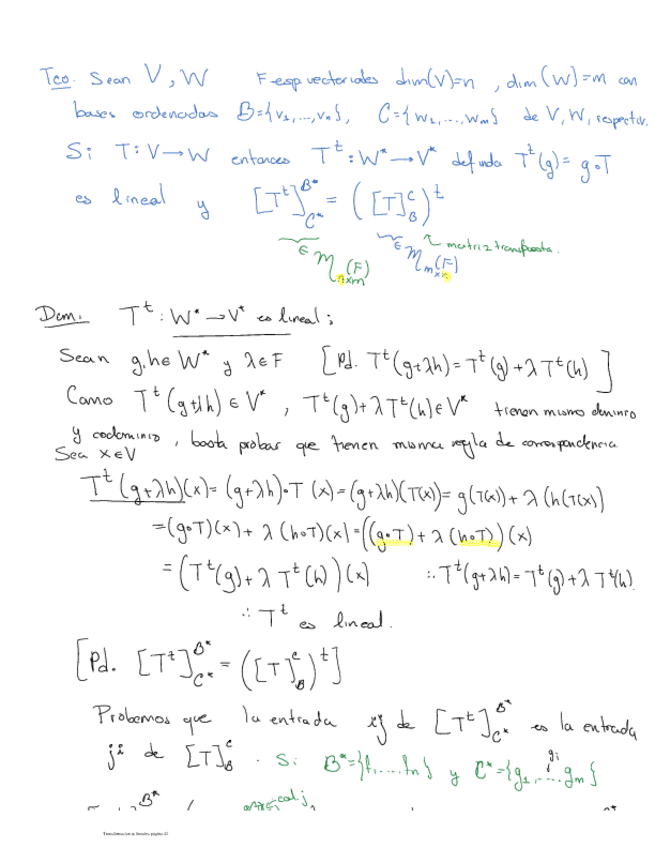 Teo. Sean V, W F-esp vectoriales dim(V)=n, dim(W)=m con
bases ordenadas B={v₁,...,vₙ}, C={w₁,...,wₘ} de V, W, respectiv.
Si T: V→W entonces Tᵗ: W*→V* definida Tᵗ(g)= g∘T
es lineal y [Tᵗ]_{C*}^{B*} = ([T]_B^C)ᵗ
∈ M_{n×m}(F) ∈ M_{m×n}(F) matriz transpuesta.
Dem. Tᵗ: W*→V* es lineal;
Sean g,h∈W* y λ∈F [Pd. Tᵗ(g+λh)=Tᵗ(g)+λTᵗ(h)]
Como Tᵗ(g+λh)∈V*, Tᵗ(g)+λTᵗ(h)∈V* tienen mismo dominio
y codominio, basta probar que tienen misma regla de correspondencia
Sea x∈V
Tᵗ(g+λh)(x)=(g+λh)∘T(x)=(g+λh)(T(x))=g(T(x))+λ(h(T(x))
=(g∘T)(x)+λ(h∘T)(x)=((g∘T)+λ(h∘T))(x)
=(Tᵗ(g)+λTᵗ(h))(x) ∴Tᵗ(g+λh)=Tᵗ(g)+λTᵗ(h)
∴ Tᵗ es lineal.
[Pd. [Tᵗ]_{C*}^{B*} = ([T]_B^C)ᵗ]
Probemos que la entrada ij de [Tᵗ]_{C*}^{B*} es la entrada
ji de [T]_B^C. Si B*={f₁....fₙ} y C*={g₁,....gₘ}
gi
B* col. j